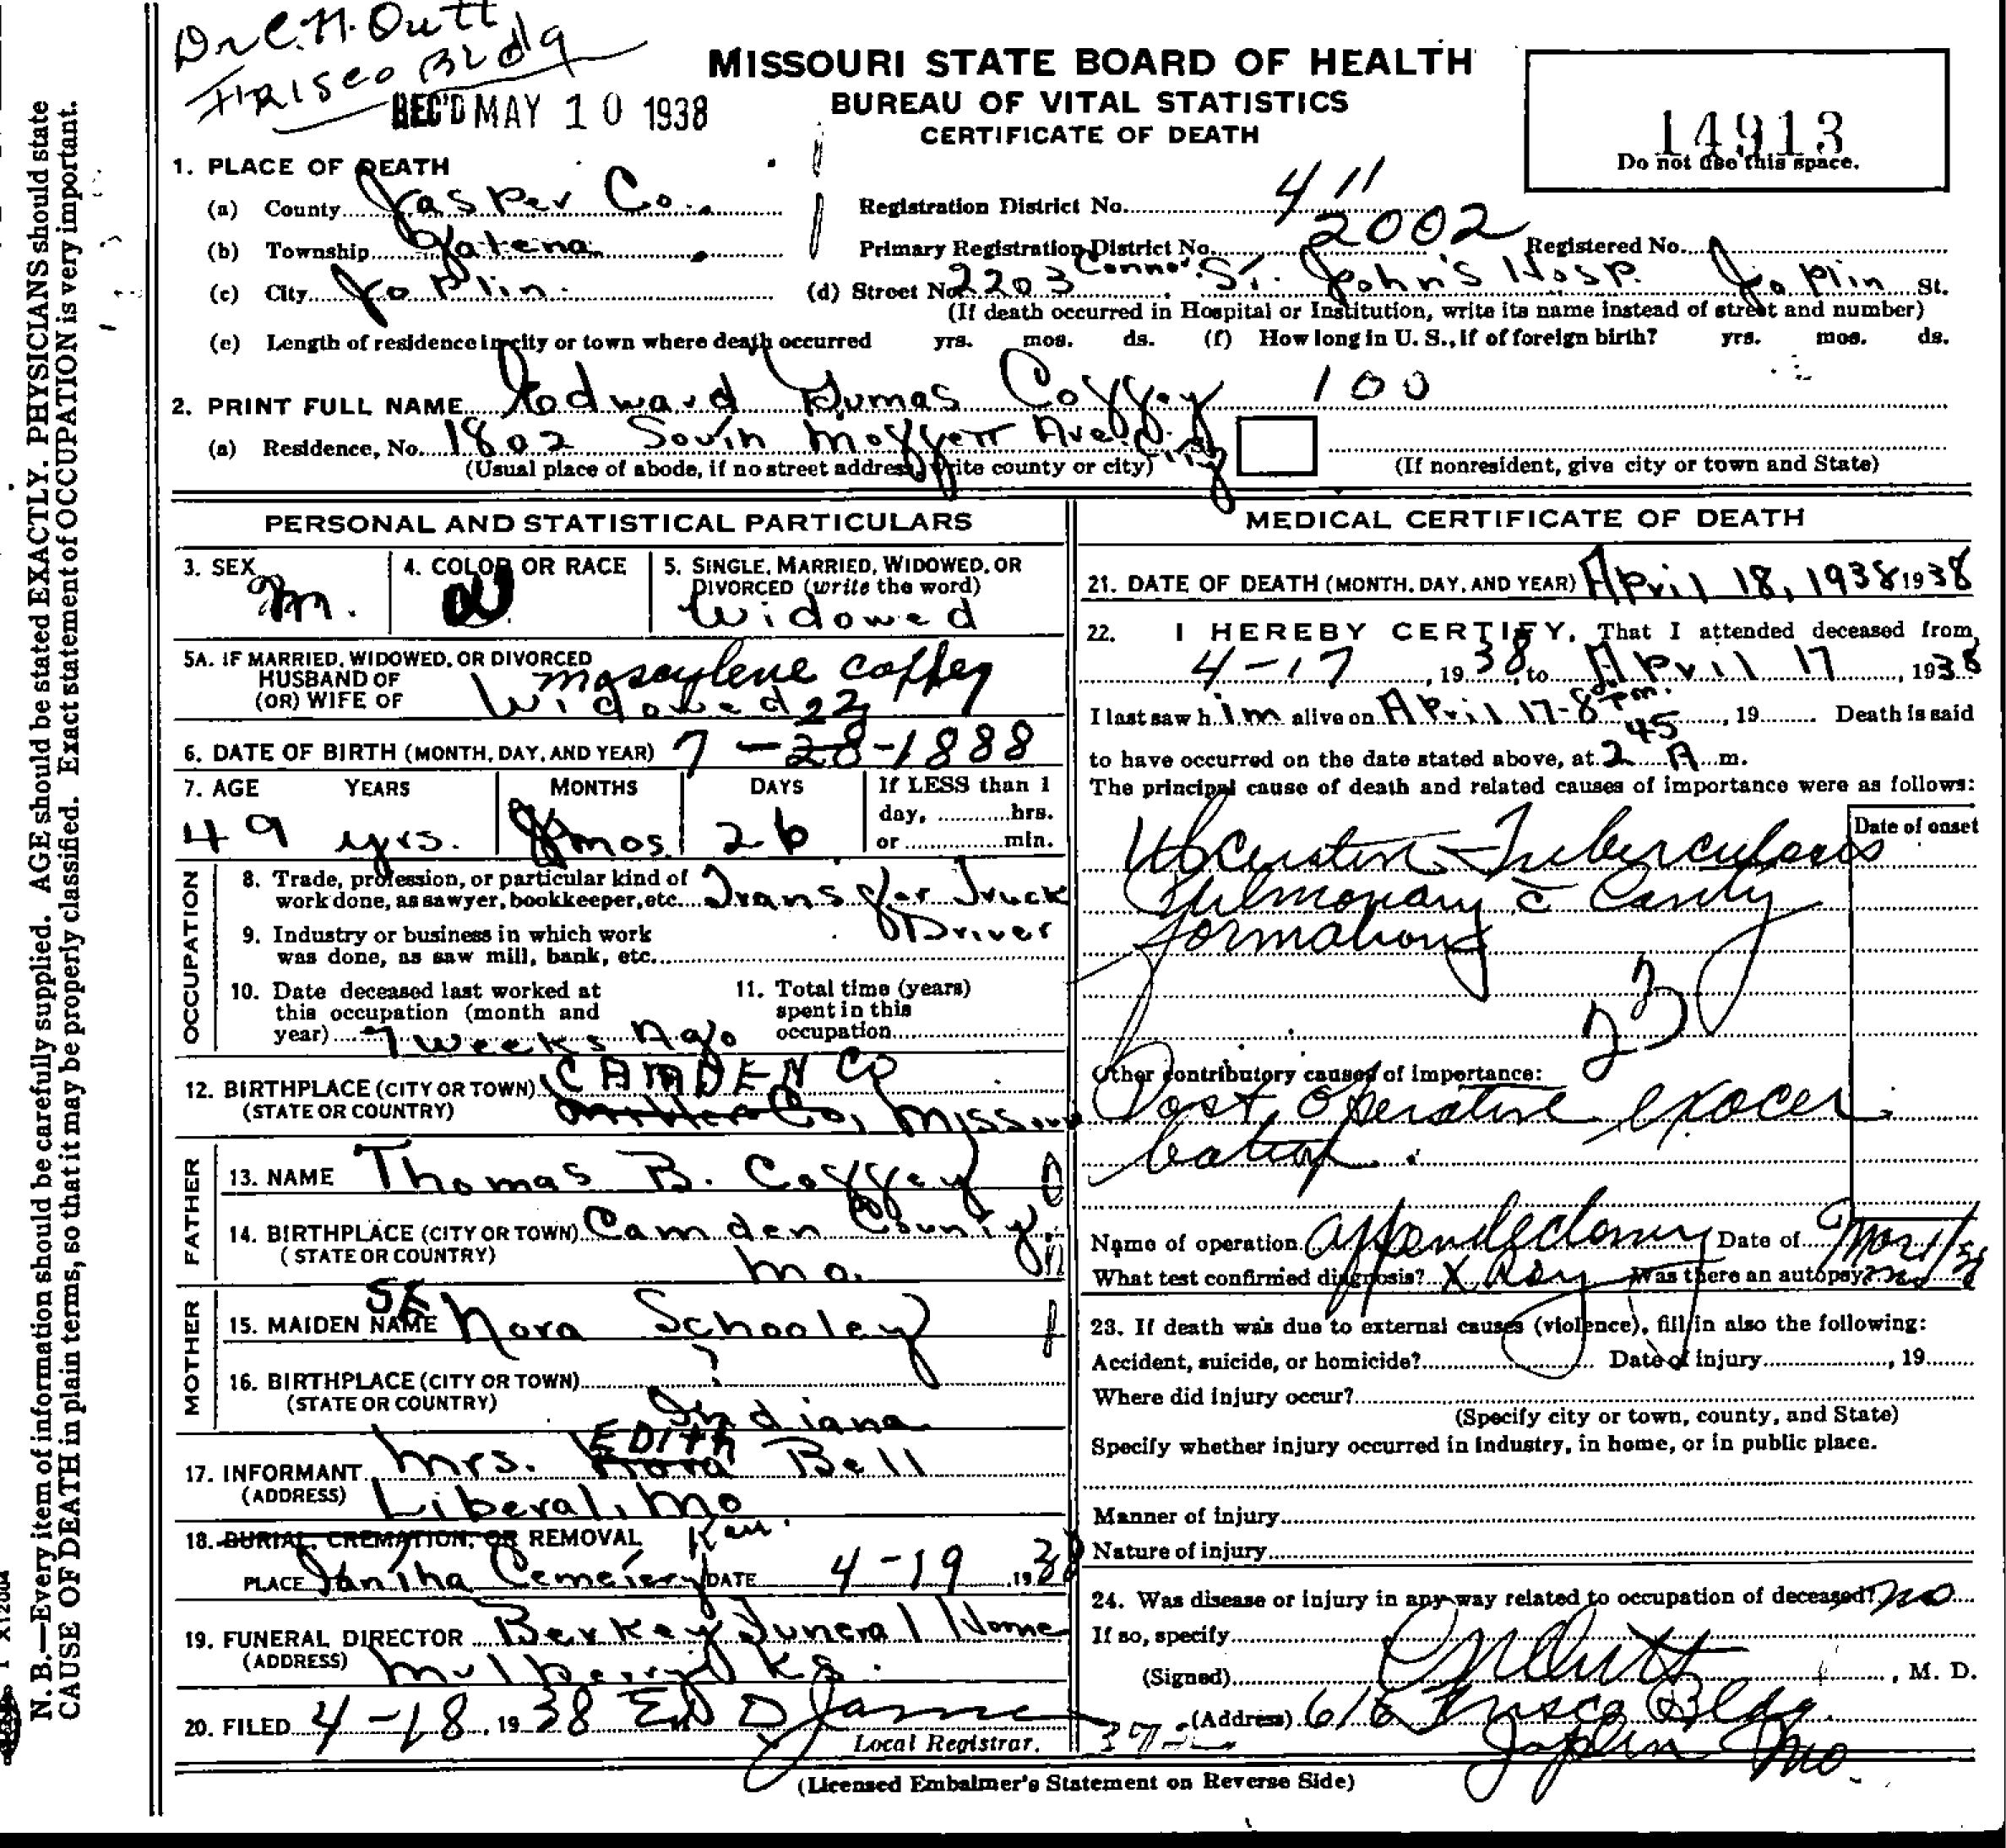 Dr C.H. Outt
Frisco Bldg
REC'D MAY 10 1938
MISSOURI STATE BOARD OF HEALTH
BUREAU OF VITAL STATISTICS
CERTIFICATE OF DEATH
14913
Do not use this space.
1. PLACE OF DEATH
(a) County Jasper Co. Registration District No. 411
(b) Township Galena Primary Registration District No. 2002 Registered No.
(c) City Joplin (d) Street No. 2203 Connor St. John's Hosp. Joplin St.
(If death occurred in Hospital or Institution, write its name instead of street and number)
(e) Length of residence in city or town where death occurred yrs. mos. ds. (f) How long in U. S., if of foreign birth? yrs. mos. ds.
2. PRINT FULL NAME Edward Dumas Coffey 100
(a) Residence, No. 1802 South Moffett Ave. City
(Usual place of abode, if no street address, write county or city) (If nonresident, give city or town and State)
PERSONAL AND STATISTICAL PARTICULARS
3. SEX 4. COLOR OR RACE 5. SINGLE, MARRIED, WIDOWED, OR
DIVORCED (write the word)
M. W. Widowed
5A. IF MARRIED, WIDOWED, OR DIVORCED
HUSBAND OF Coffey
(OR) WIFE OF Widowed
22
6. DATE OF BIRTH (MONTH, DAY, AND YEAR) 7-28-1888
7. AGE YEARS MONTHS DAYS If LESS than 1
day, hrs.
49 yrs. 8 mos. 26 or min.
OCCUPATION
8. Trade, profession, or particular kind of
work done, as sawyer, bookkeeper, etc. Transfer Truck
Driver
9. Industry or business in which work
was done, as saw mill, bank, etc.
10. Date deceased last worked at 11. Total time (years)
this occupation (month and spent in this
year) 7 weeks Ago occupation
12. BIRTHPLACE (CITY OR TOWN) CAMDEN CO
(STATE OR COUNTRY) Miller Co, Missouri
FATHER
13. NAME Thomas B. Coffey
14. BIRTHPLACE (CITY OR TOWN) Camden County
(STATE OR COUNTRY) Mo.
MOTHER
15. MAIDEN NAME Nora Schooley
16. BIRTHPLACE (CITY OR TOWN) ?
(STATE OR COUNTRY) Indiana
EDITH
17. INFORMANT Mrs. Nora Bell
(ADDRESS) Liberal, Mo
18. BURIAL, CREMATION, OR REMOVAL
PLACE Iantha Cemetery DATE 4-19 1938
19. FUNERAL DIRECTOR Berkey Funeral Home
(ADDRESS) Mulberry Ks.
20. FILED 4-18, 1938 E D James
Local Registrar.
MEDICAL CERTIFICATE OF DEATH
21. DATE OF DEATH (MONTH, DAY, AND YEAR) April 18, 1938 1938
22. I HEREBY CERTIFY, That I attended deceased from
4-17, 1938, to April 17, 1938
I last saw him alive on April 17-8 Pm., 19 Death is said
to have occurred on the date stated above, at 2 45 A m.
The principal cause of death and related causes of importance were as follows:
Date of onset
Ulcerative Tuberculosis
Pulmonary c̄ Cavity
formation
23
Other contributory causes of importance:
Post Operative exacer
bation.
Name of operation appendectomy Date of Mar 1/38
What test confirmed diagnosis? X Ray Was there an autopsy? no
23. If death was due to external causes (violence), fill in also the following:
Accident, suicide, or homicide? Date of injury, 19
Where did injury occur?
(Specify city or town, county, and State)
Specify whether injury occurred in industry, in home, or in public place.
Manner of injury
Nature of injury
24. Was disease or injury in any way related to occupation of deceased? no
If so, specify
(Signed) C H Outt, M. D.
(Address) 616 Frisco Bldg
Joplin Mo.
(Licensed Embalmer's Statement on Reverse Side)
N. B.—Every item of information should be carefully supplied. AGE should be stated EXACTLY. PHYSICIANS should state
CAUSE OF DEATH in plain terms, so that it may be properly classified. Exact statement of OCCUPATION is very important.
X12004